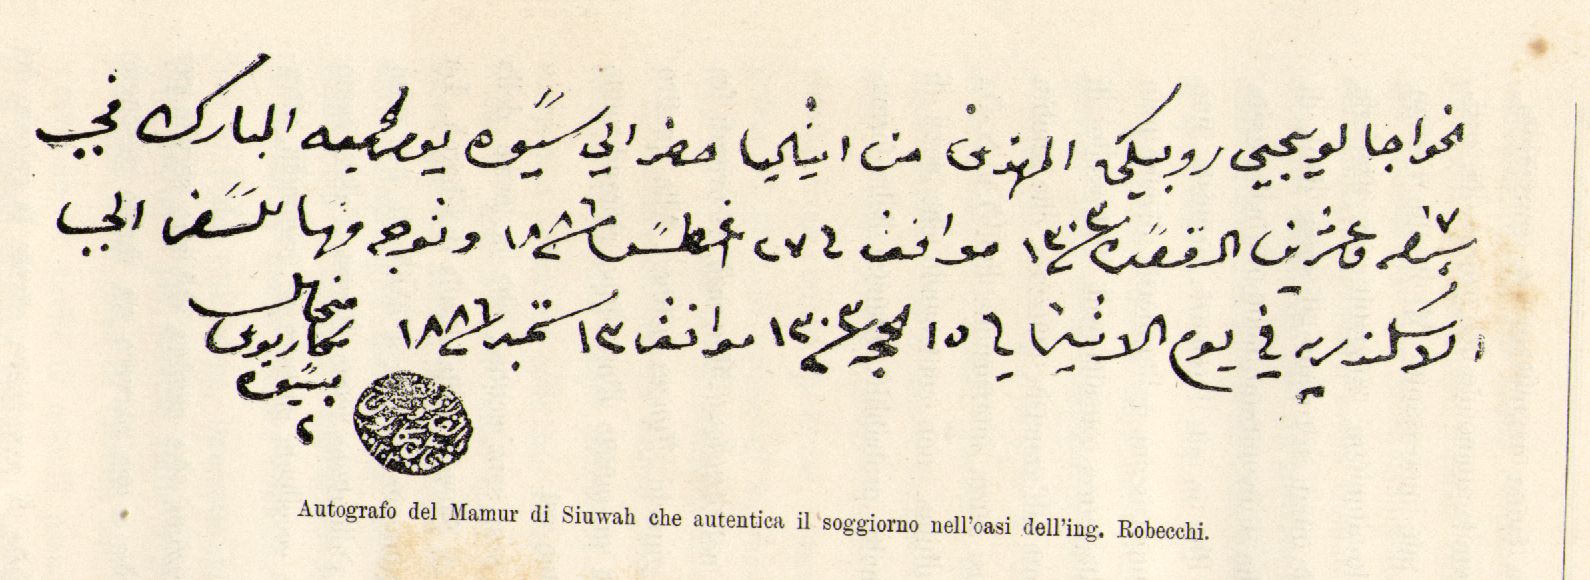 نخواجا لويجيي روبيكى المهندس من ايتاليا حضر الي سيوه يوم الجمعه المبارك في
وعشرين القعده سنة ١٣٠٣ موافق في ٢٧ اغسطس سنة ١٨٨٦ وتوجه منها للسفر الي
الاسكندريه في يوم الاثنين في ١٥ الحجه سنة ١٣٠٣ موافق ١٣ ستمبر سنة ١٨٨٦
بسيوه
Autografo del Mamur di Siuwah che autentica il soggiorno nell'oasi dell'ing. Robecchi.